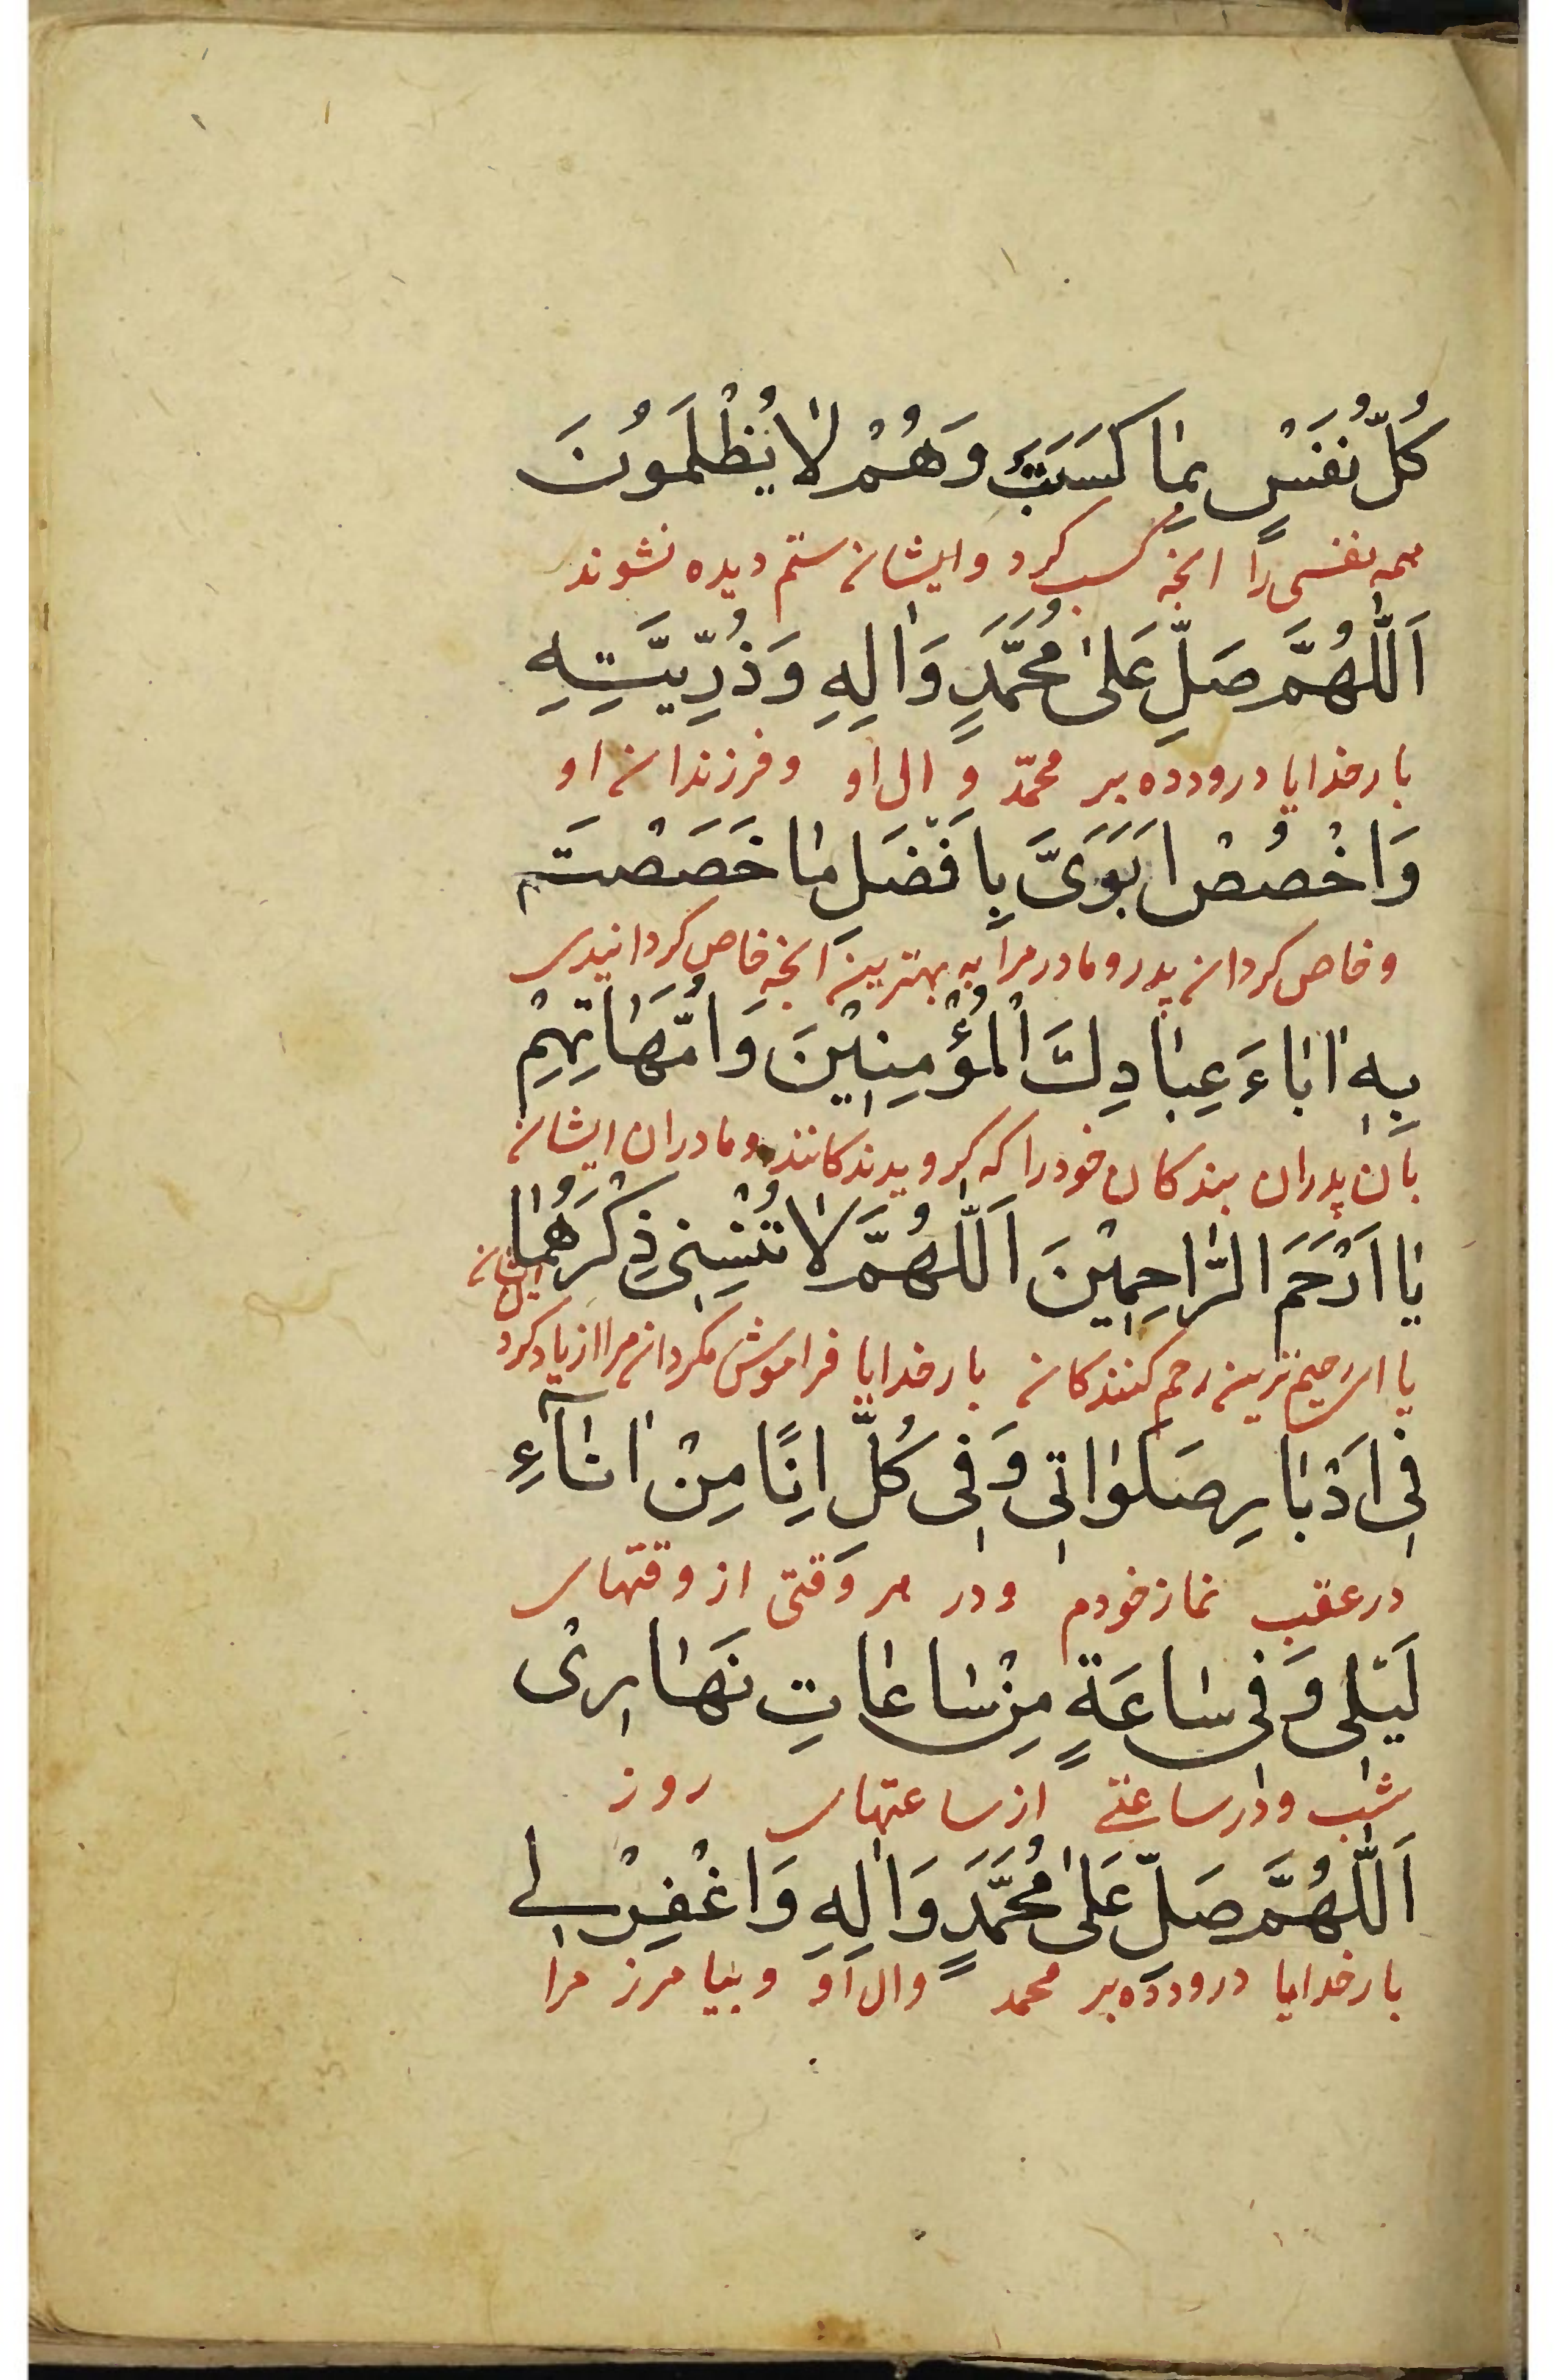 كُلُّ نَفْسٍ بِمٰا كَسَبَتْ وَهُمْ لٰا يُظْلَمُونَ
همه نفسی را انچه کسب کرد و ایشان ستم دیده نشوند
اَللّٰهُمَّ صَلِّ عَلىٰ مُحَمَّدٍ وَاٰلِهِ وَذُرِّيَّتِهِ
بار خدایا درود ده بر محمّد و ال او و فرزندان او
وَاخْصُصْ اَبَوَىَّ بِاَفْضَلِ مٰا خَصَصْتَ
و خاص کردان پدر و مادر مرا به بهترین انچه خاص کردانیدی
بِهٖ اٰبٰاءَ عِبٰادِكَ الْمُؤْمِنٖيْنَ وَاُمَّهٰاتِهِمْ
بان پدران بندکان خود را که کرویدندکانند و مادران ایشان
يٰا اَرْحَمَ الرّٰاحِمٖيْنَ اَللّٰهُمَّ لٰا تُنْسِنٖى ذِكْرَهُمٰا
ایشان
یا ای رحیم ترین رحم کنندکان بار خدایا فراموش مکردان مرا از یاد کرد
فٖى اَدْبٰارِ صَلَوٰاتٖى وَفٖى كُلِّ اِنًا مِنْ اٰنٰآءِ
در عقب نماز خودم و در هر وقتی از وقتهای
لَيْلٖى وَفٖى سٰاعَةٍ مِنْ سٰاعٰاتِ نَهٰارٖىْ
شب و در ساعتی از ساعتهای روز
اَللّٰهُمَّ صَلِّ عَلىٰ مُحَمَّدٍ وَاٰلِهِ وَاغْفِرْ لٖى
بار خدایا درود ده بر محمد و ال او و بیامرز مرا